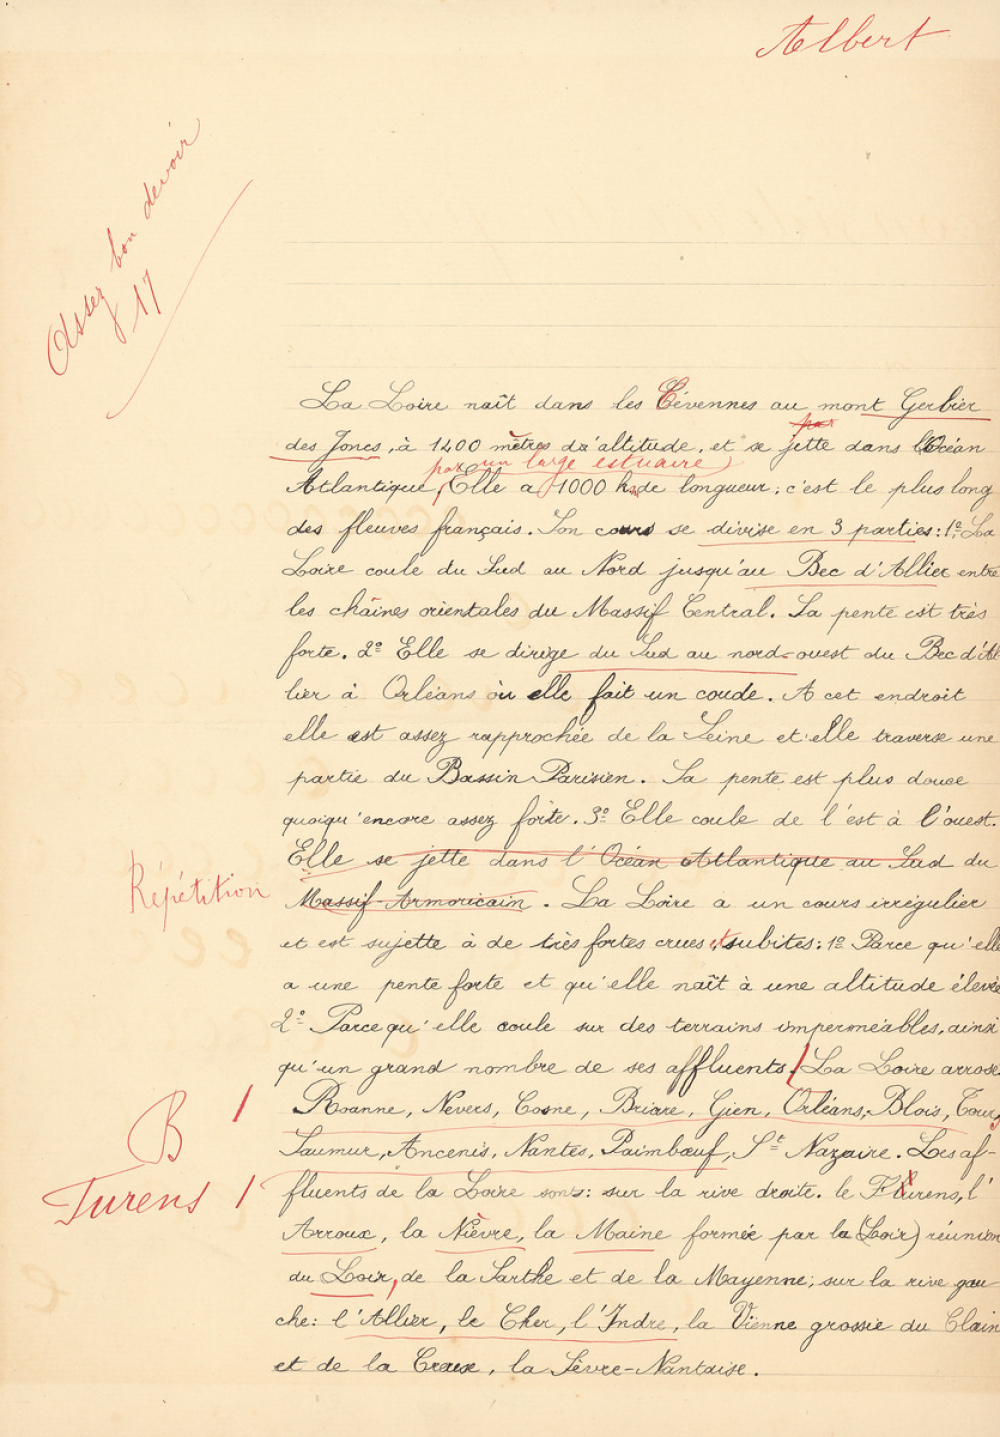 Albert
Assez bon devoir
17
La Loire naît dans les Cévennes au mont Gerbier
par
des Joncs, à 1400 mètres d'altitude, et se jette dans l'Océan
par un large estuaire
Atlantique, Elle a 1000 k. de longueur; c'est le plus long
des fleuves français. Son cours se divise en 3 parties: 1º. La
Loire coule du Sud au Nord jusqu'au Bec d'Allier entre
les chaînes orientales du Massif Central. Sa pente est très
forte. 2º Elle se dirige du Sud au nord-ouest du Bec d'Al
lier à Orléans où elle fait un coude. A cet endroit
elle est assez rapprochée de la Seine et elle traverse une
partie du Bassin Parisien. Sa pente est plus douce
quoiqu'encore assez forte. 3º Elle coule de l'est à l'ouest.
Elle se jette dans l'Océan Atlantique au Sud du
Répétition
Massif-Armoricain. La Loire a un cours irrégulier
et est sujette à de très fortes crues et subites: 1º Parce qu'elle
a une pente forte et qu'elle naît à une altitude élevée
2º Parce qu'elle coule sur des terrains imperméables, ainsi
qu'un grand nombre de ses affluents. La Loire arrose
Roanne, Nevers, Cosne, Briare, Gien, Orléans, Blois, Tours,
B
Saumur, Ancenis, Nantes, Paimbœuf, St Nazaire. Les af-
Turens
fluents de la Loire sont: sur la rive droite. le Furens, l'
Arroux, la Nièvre, la Maine formée par la (Loir) réunion
du Loir, de la Sarthe et de la Mayenne; sur la rive gau
che: l'Allier, le Cher, l'Indre, la Vienne grossie du Clain
et de la Creuse, la Sèvre-Nantaise.